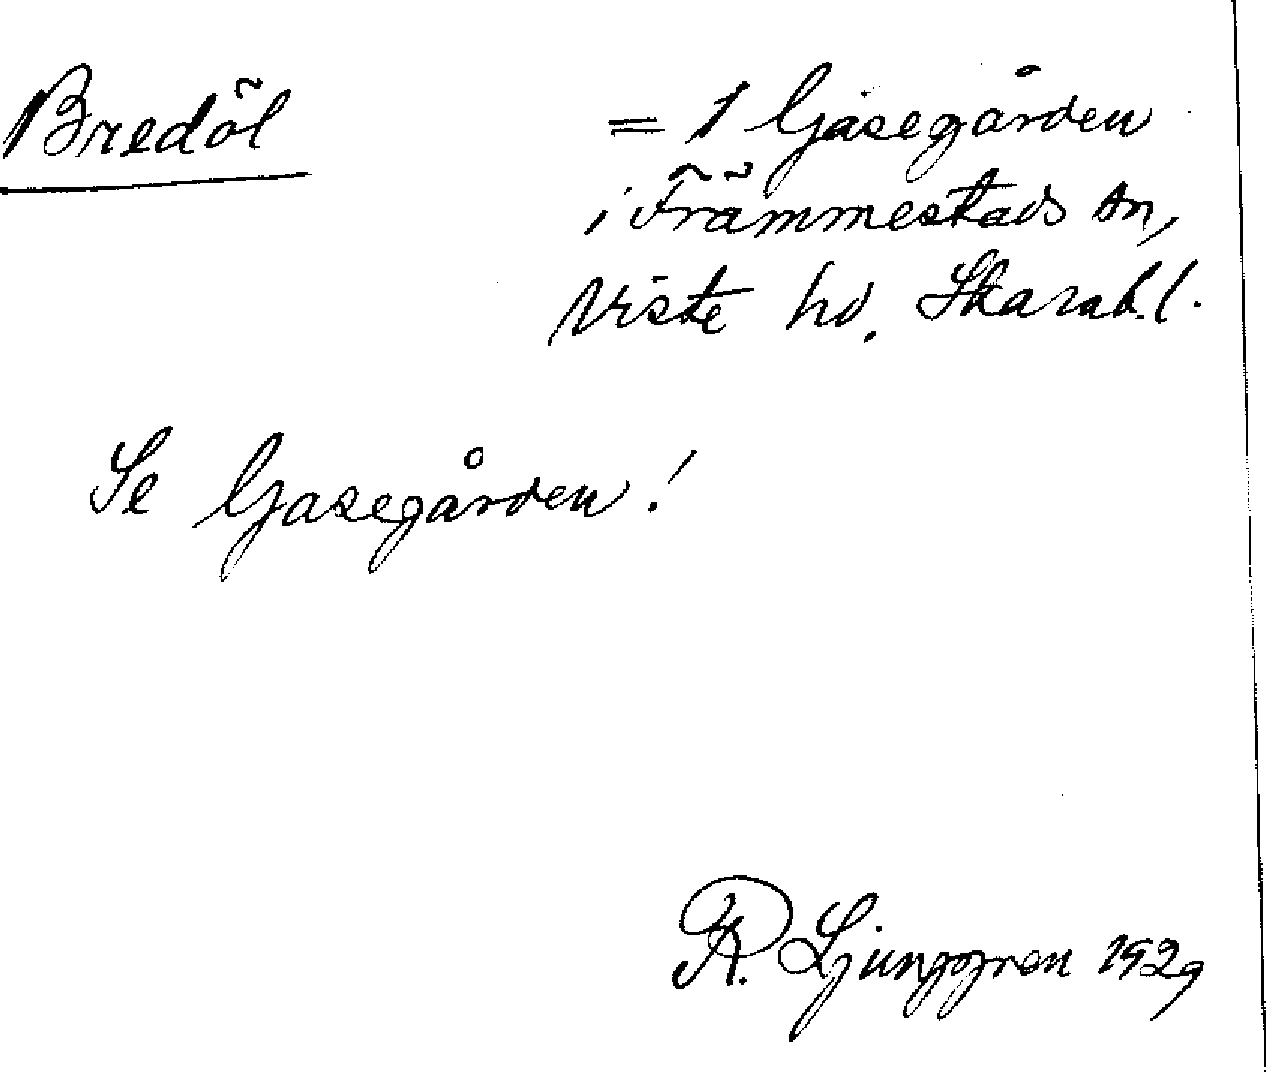 Bredöl = 1 Gåsegården
i Främmestads sn,
Viste hd. Skarab.l.
Se Gasegården!
R. Ljunggren 1929